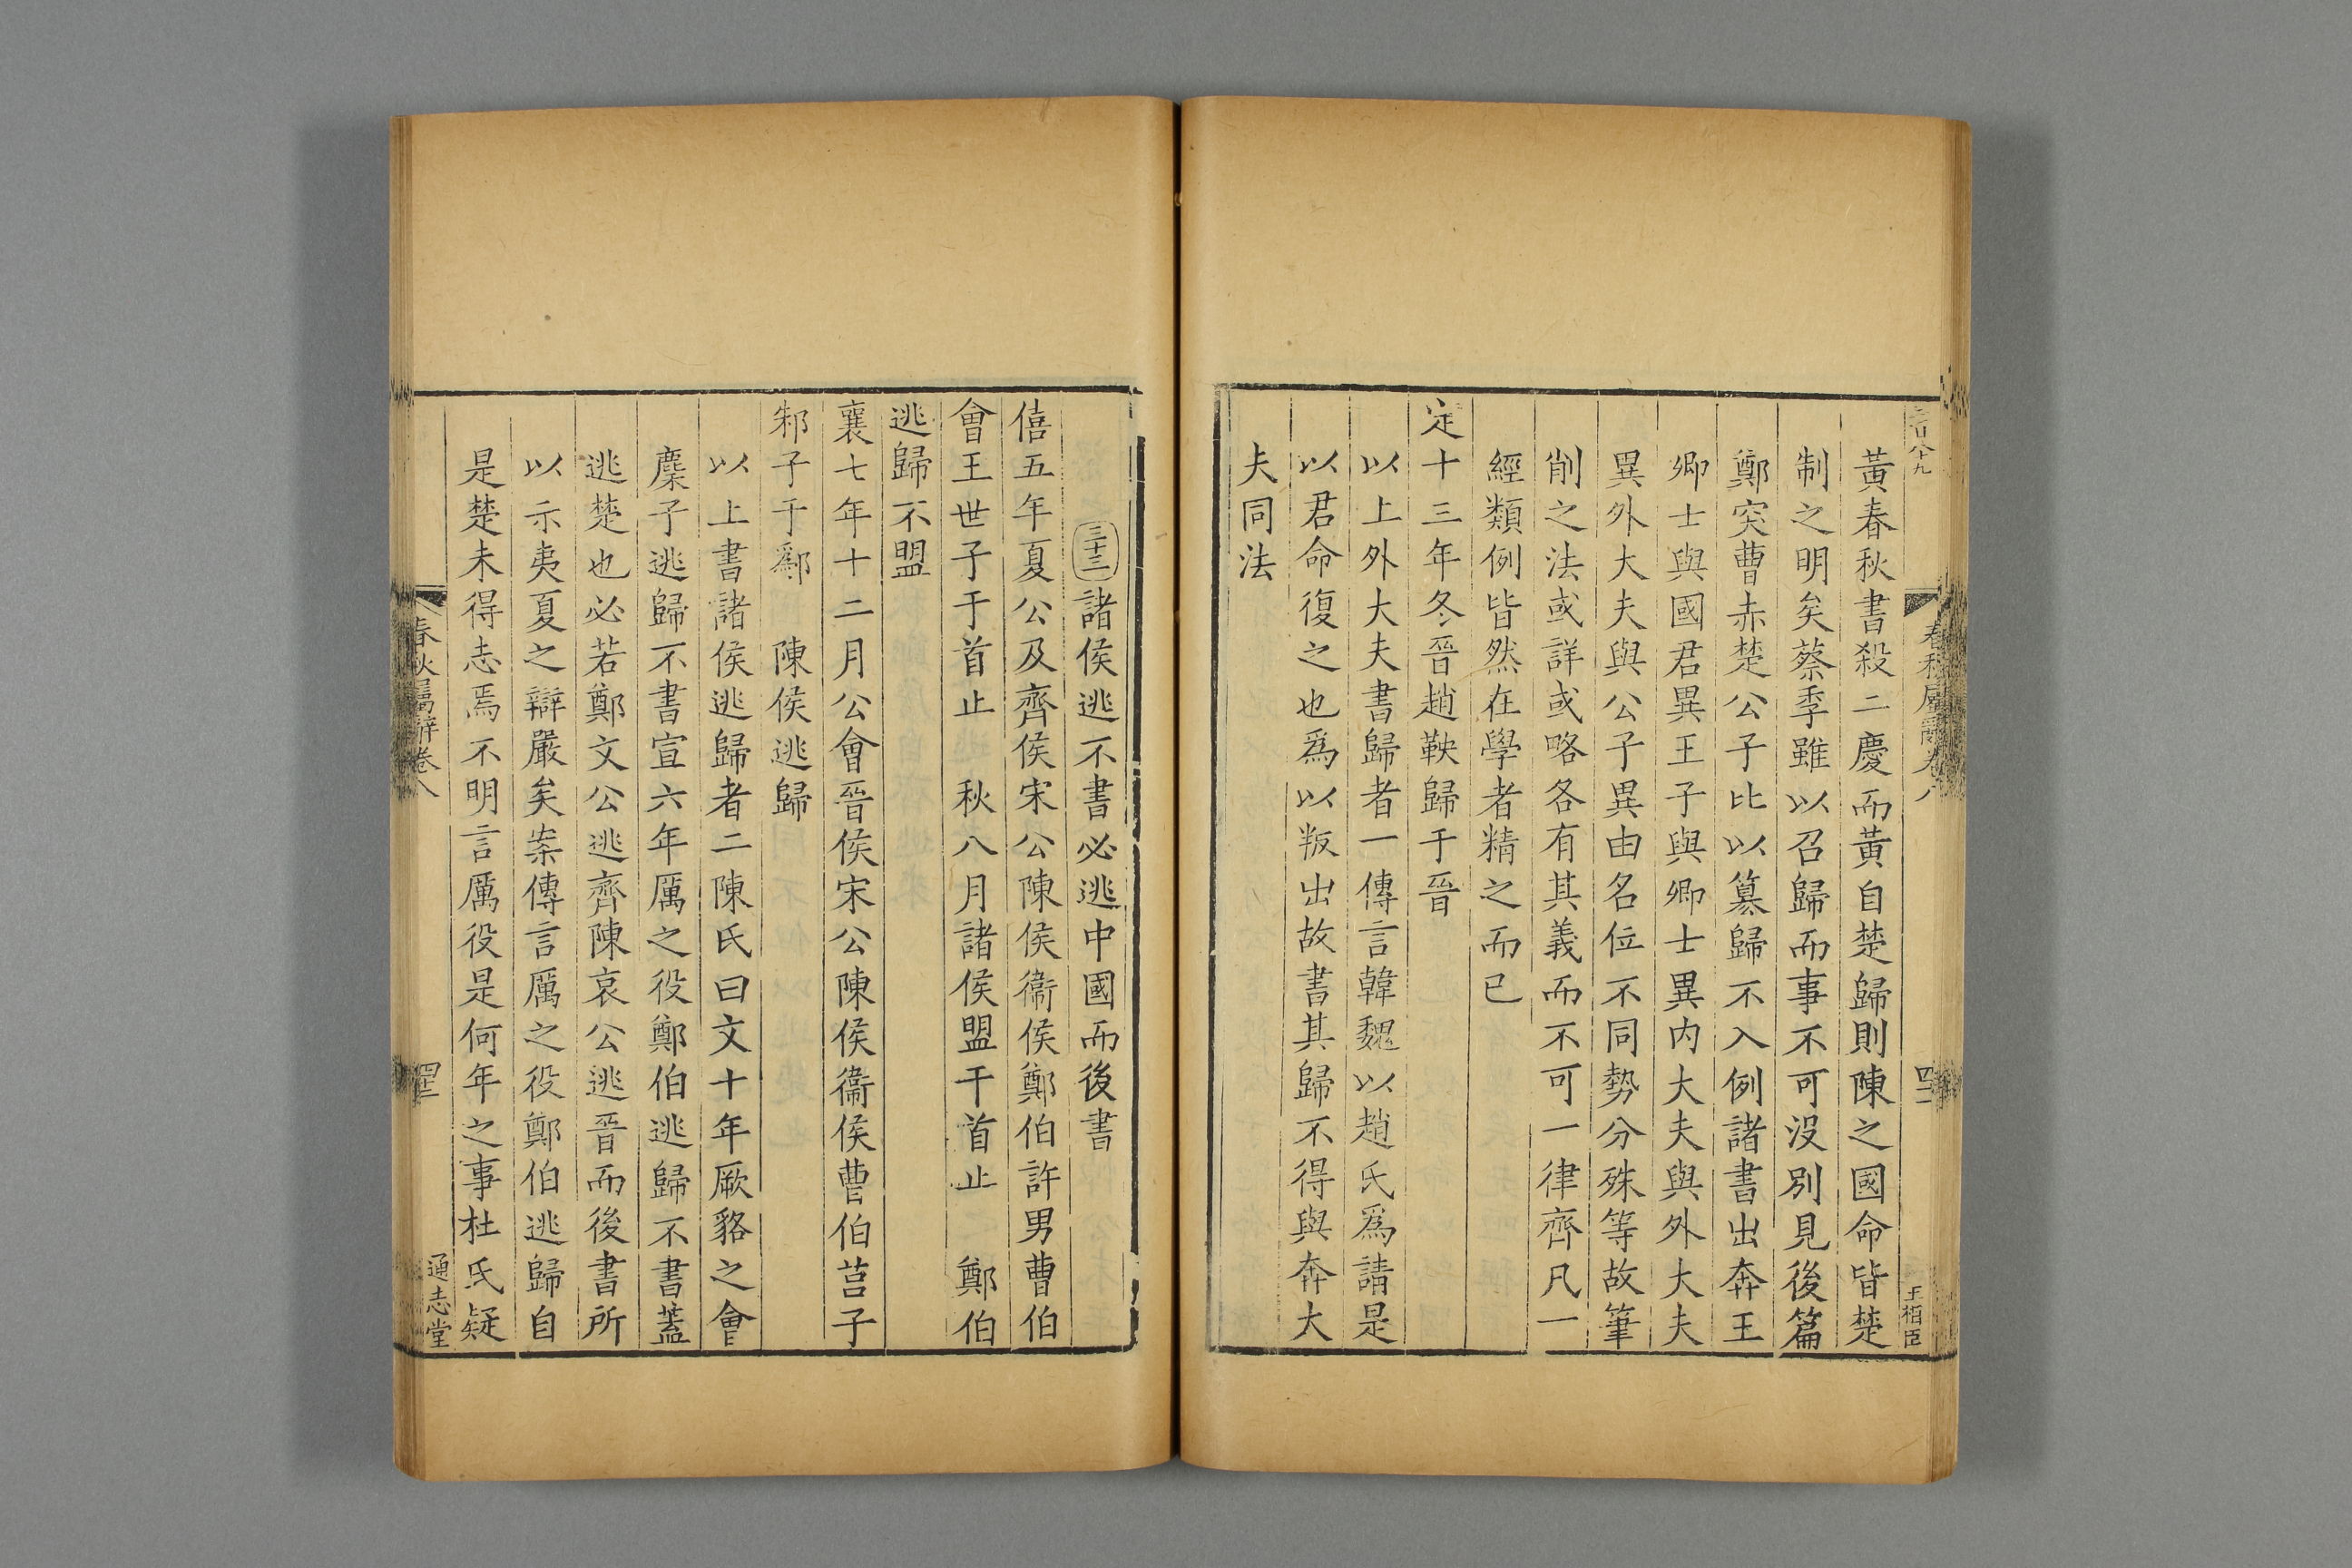 黃春秋書殺二慶而黃自楚歸則陳之國命皆楚
制之明矣蔡季雖以召歸而事不可没别見後篇
鄭突曹赤楚公子比以簒歸不入例諸書出奔王
卿士與國君異王子與卿士異内大夫與外大夫
異外大夫與公子異由名位不同勢分殊等故筆
削之法或詳或略各有其義而不可一律齊凡一
經類例皆然在學者精之而已
定十三年冬晉趙鞅歸于晉
以上外大夫書歸者一傳言韓魏以趙氏爲請是
以君命復之也爲以叛出故書其歸不得與奔大
夫同法
三十三 諸侯逃不書必逃中國而後書
僖五年夏公及齊侯宋公陳侯衞侯鄭伯許男曹伯
會王世子于首止 秋八月諸侯盟于首止 鄭伯
逃歸不盟
襄七年十二月公會晉侯宋公陳侯衞侯曹伯莒子
邾子于鄬 陳侯逃歸
以上書諸侯逃歸者二陳氏曰文十年厥貉之會
麇子逃歸不書宣六年厲之役鄭伯逃歸不書蓋
逃楚也必若鄭文公逃齊陳哀公逃晉而後書所
以示夷夏之辯嚴矣案傳言厲之役鄭伯逃歸自
是楚未得志焉不明言厲役是何年之事杜氏疑
春秋屬辭卷八
通志堂